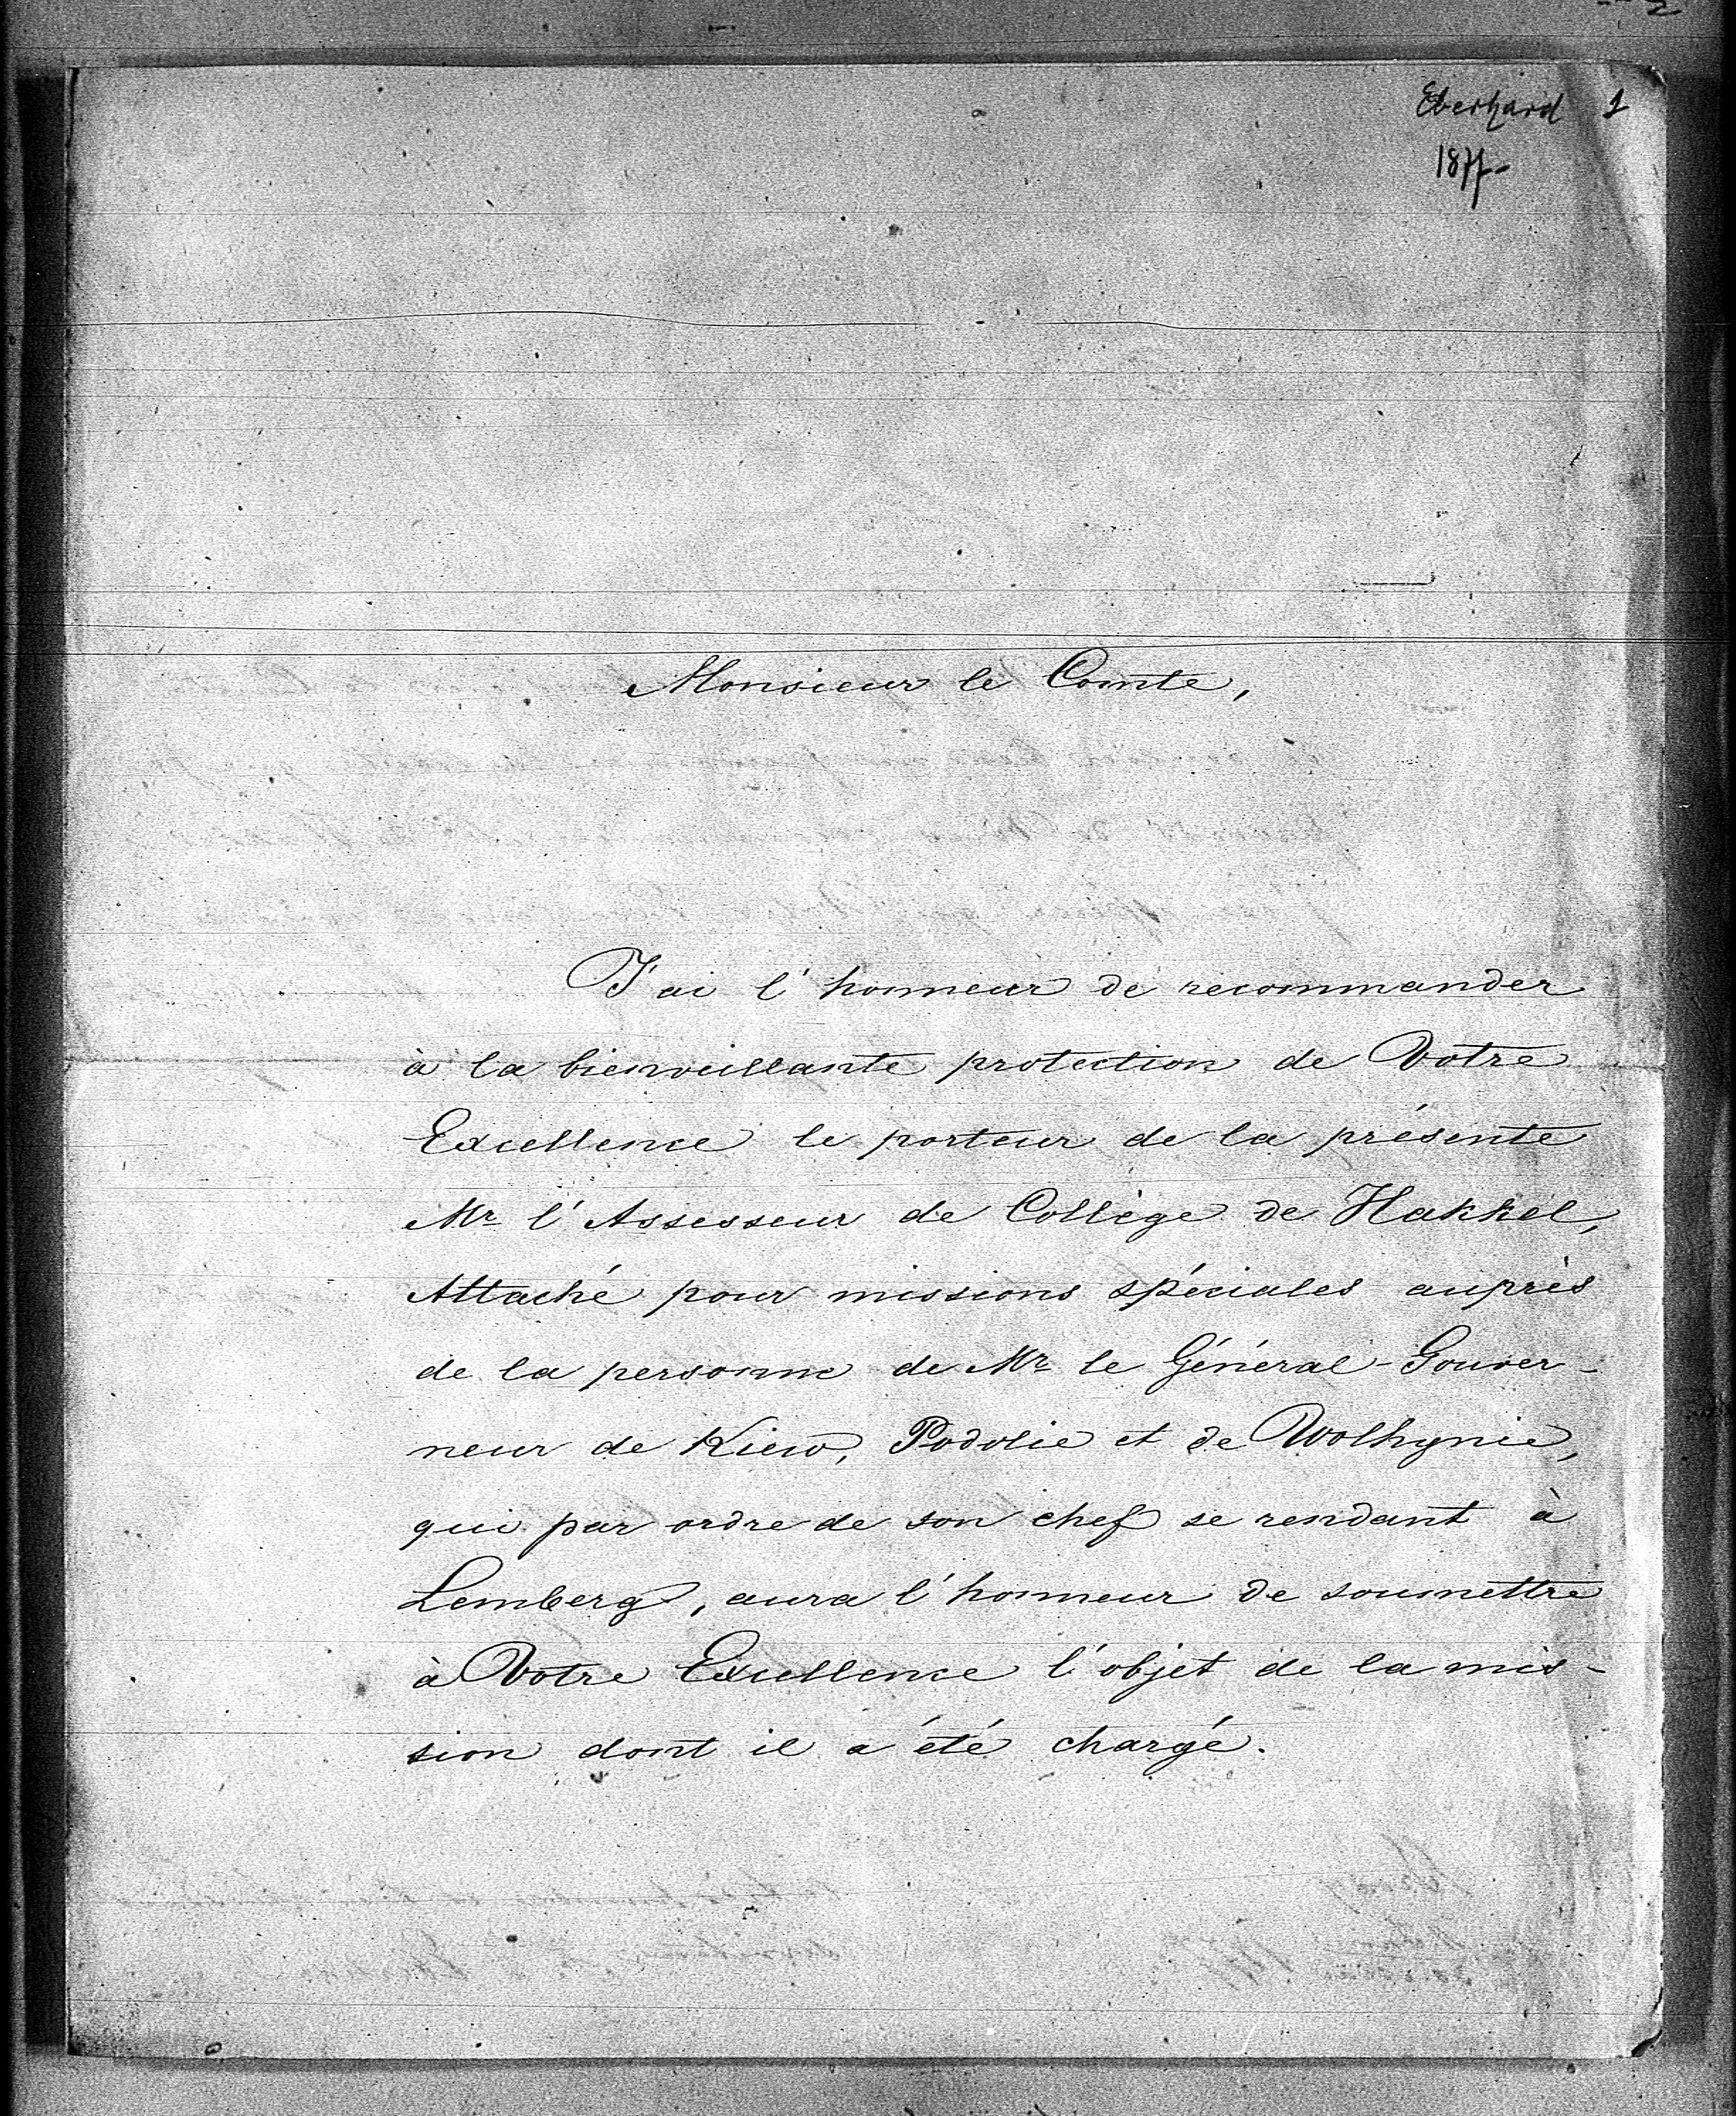 Eberhard 1
1877-
Monsieur le Comte,
J'ai l'honneur de recommander
à la bienveillante protection de Votre
Excellence le porteur de la présente
Mr l'Assesseur de Collège de Hakkel,
Attaché pour missions spéciales auprès
de la personne de Mr le Général-Gouver-
neur de Kiew, Podolie et de Wolhynie,
qui par ordre de son chef se rendant à
Lemberg, aura l'honneur de soumettre
à Votre Excellence l'objet de la mis-
sion dont il a été chargé.